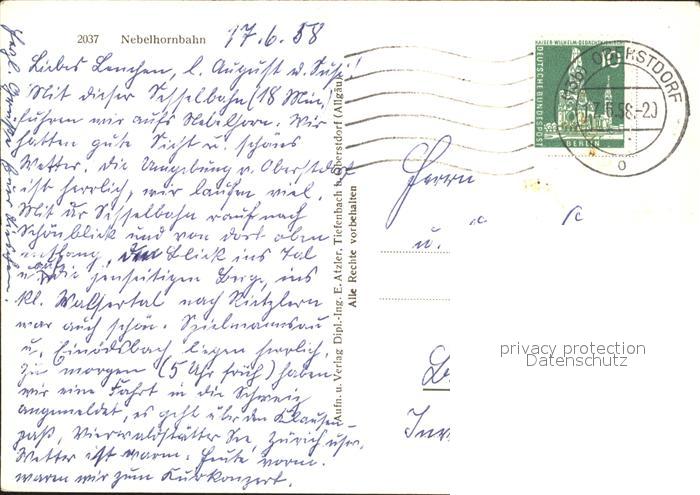 2037 Nebelhornbahn 17.6.58
Liebes Lenchen, l. August u. Susi!
Mit dieser Sesselbahn (18 Min.)
fuhren wir aufs Nebelhorn. Wir
hatten gute Sicht u. schönes
Wetter. Die Umgebung v. Oberstdorf
ist herrlich, wir laufen viel.
Mit der Sesselbahn rauf nach
Schönblick und von dort oben
entlang, den Blick ins Tal
u. auf die jenseitigen Berge, ins
kl. Walsertal nach Rietzlern
war auch schön. Spielmannsau
u. Einödsbach liegen herrlich.
Zu morgen (5 Uhr früh) haben
wir eine Fahrt in die Schweiz
angemeldet, es geht über den Klausen-
paß, Vierwaldstätter See, Zürich usw.
Wetter ist warm. Heute vorm.
waren wir zum Kurkonzert.
Aufn. u. Verlag Dipl.-Ing. E. Atzler, Tiefenbach b. Oberstdorf (Allgäu)
Alle Rechte vorbehalten
KAISER-WILHELM-GEDÄCHTNISKIRCHE
10
DEUTSCHE BUNDESPOST
BERLIN
OBERSTDORF
17.6.58.-20
Herrn
u.
privacy protection
Datenschutz